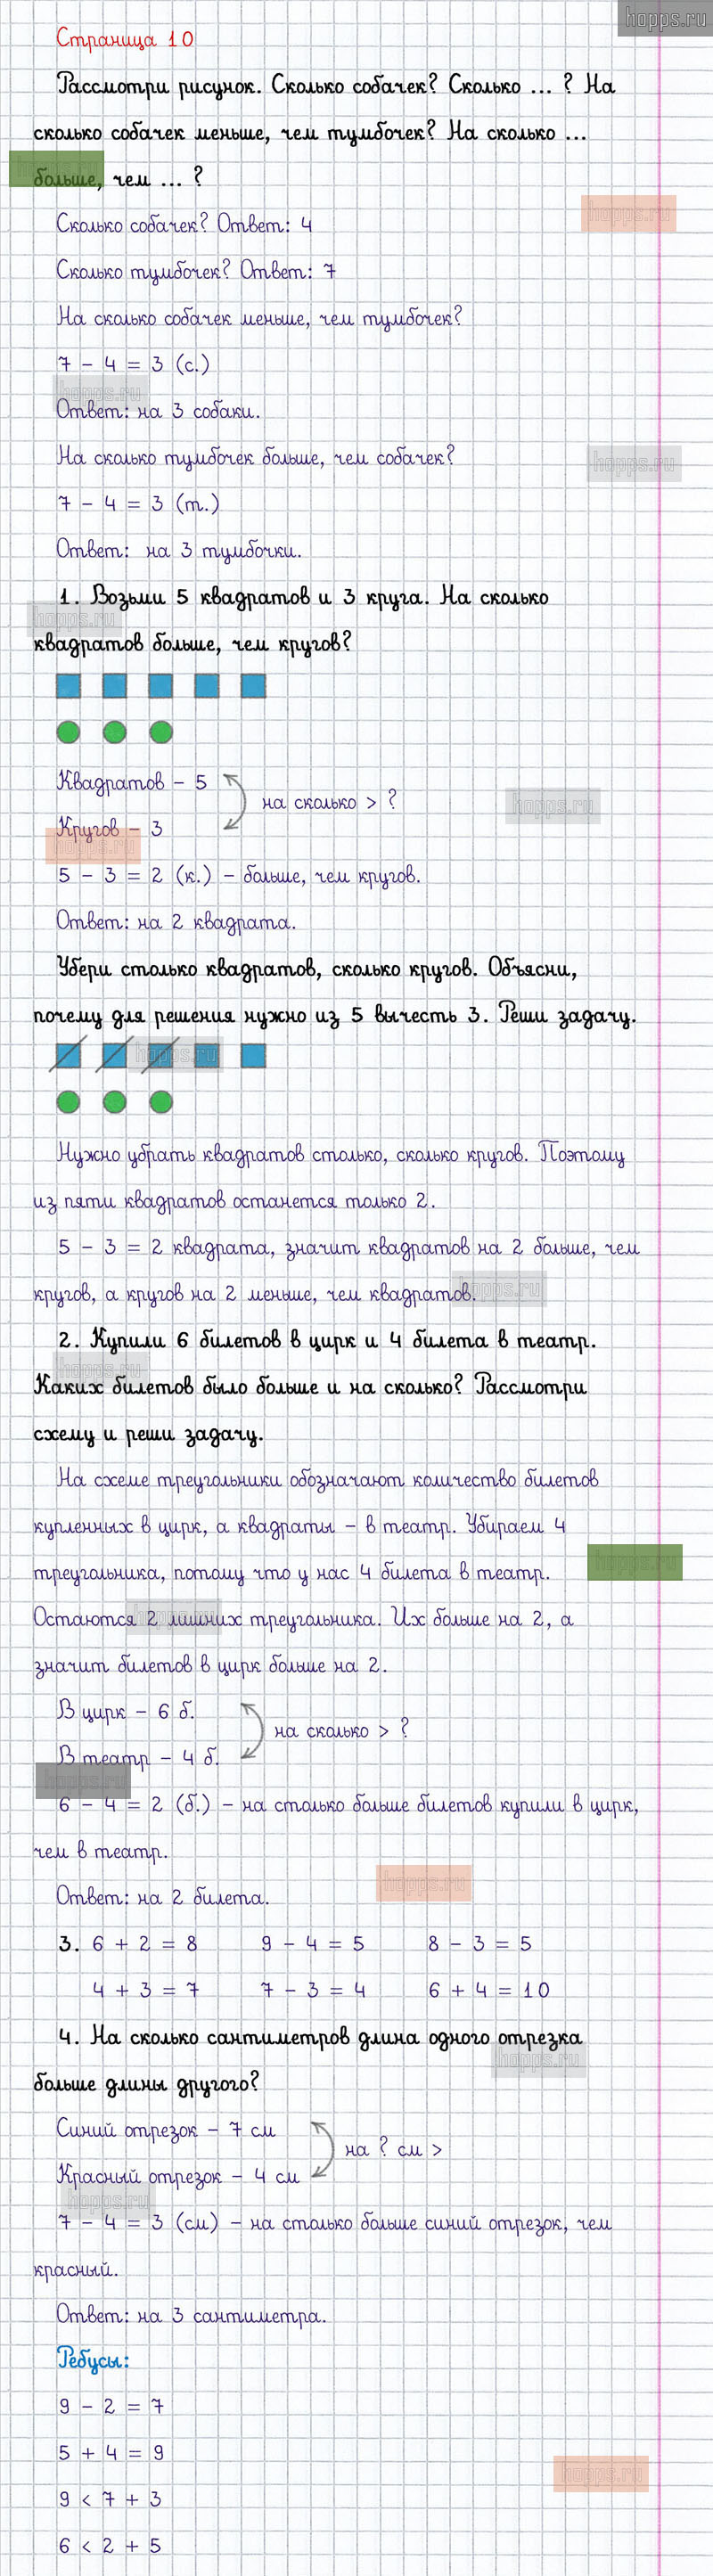 hopps.ru
Страница 10
Рассмотри рисунок. Сколько собачек? Сколько ... ? На
сколько собачек меньше, чем тумбочек? На сколько ...
больше, чем ... ?
hopps.ru
Сколько собачек? Ответ: 4
Сколько тумбочек? Ответ: 7
На сколько собачек меньше, чем тумбочек?
7 - 4 = 3 (с.)
hopps.ru
Ответ: на 3 собаки.
На сколько тумбочек больше, чем собачек?
hopps.ru
7 - 4 = 3 (т.)
Ответ: на 3 тумбочки.
1. Возьми 5 квадратов и 3 круга. На сколько
hopps.ru
квадратов больше, чем кругов?
Квадратов - 5
на сколько > ?
hopps.ru
Кругов - 3
hopps.ru
5 - 3 = 2 (к.) - больше, чем кругов.
Ответ: на 2 квадрата.
Убери столько квадратов, сколько кругов. Объясни,
почему для решения нужно из 5 вычесть 3. Реши задачу.
hopps.ru
Нужно убрать квадратов столько, сколько кругов. Поэтому
из пяти квадратов останется только 2.
5 - 3 = 2 квадрата, значит квадратов на 2 больше, чем
hopps.ru
кругов, а кругов на 2 меньше, чем квадратов.
2. Купили 6 билетов в цирк и 4 билета в театр.
hopps.ru
Каких билетов было больше и на сколько? Рассмотри
схему и реши задачу.
На схеме треугольники обозначают количество билетов
купленных в цирк, а квадраты - в театр. Убираем 4
hopps.ru
треугольника, потому что у нас 4 билета в театр.
hopps.ru
Остаются 2 лишних треугольника. Их больше на 2, а
значит билетов в цирк больше на 2.
В цирк - 6 б.
на сколько > ?
В театр - 4 б.
hopps.ru
6 - 4 = 2 (б.) - на столько больше билетов купили в цирк,
чем в театр.
hopps.ru
Ответ: на 2 билета.
3. 6 + 2 = 8 9 - 4 = 5 8 - 3 = 5
4 + 3 = 7 7 - 3 = 4 6 + 4 = 10
4. На сколько сантиметров длина одного отрезка
hopps.ru
больше длины другого?
Синий отрезок - 7 см
на ? см >
Красный отрезок - 4 см
hopps.ru
7 - 4 = 3 (см) - на столько больше синий отрезок, чем
красный.
Ответ: на 3 сантиметра.
Ребусы:
9 - 2 = 7
5 + 4 = 9
hopps.ru
9 < 7 + 3
6 < 2 + 5